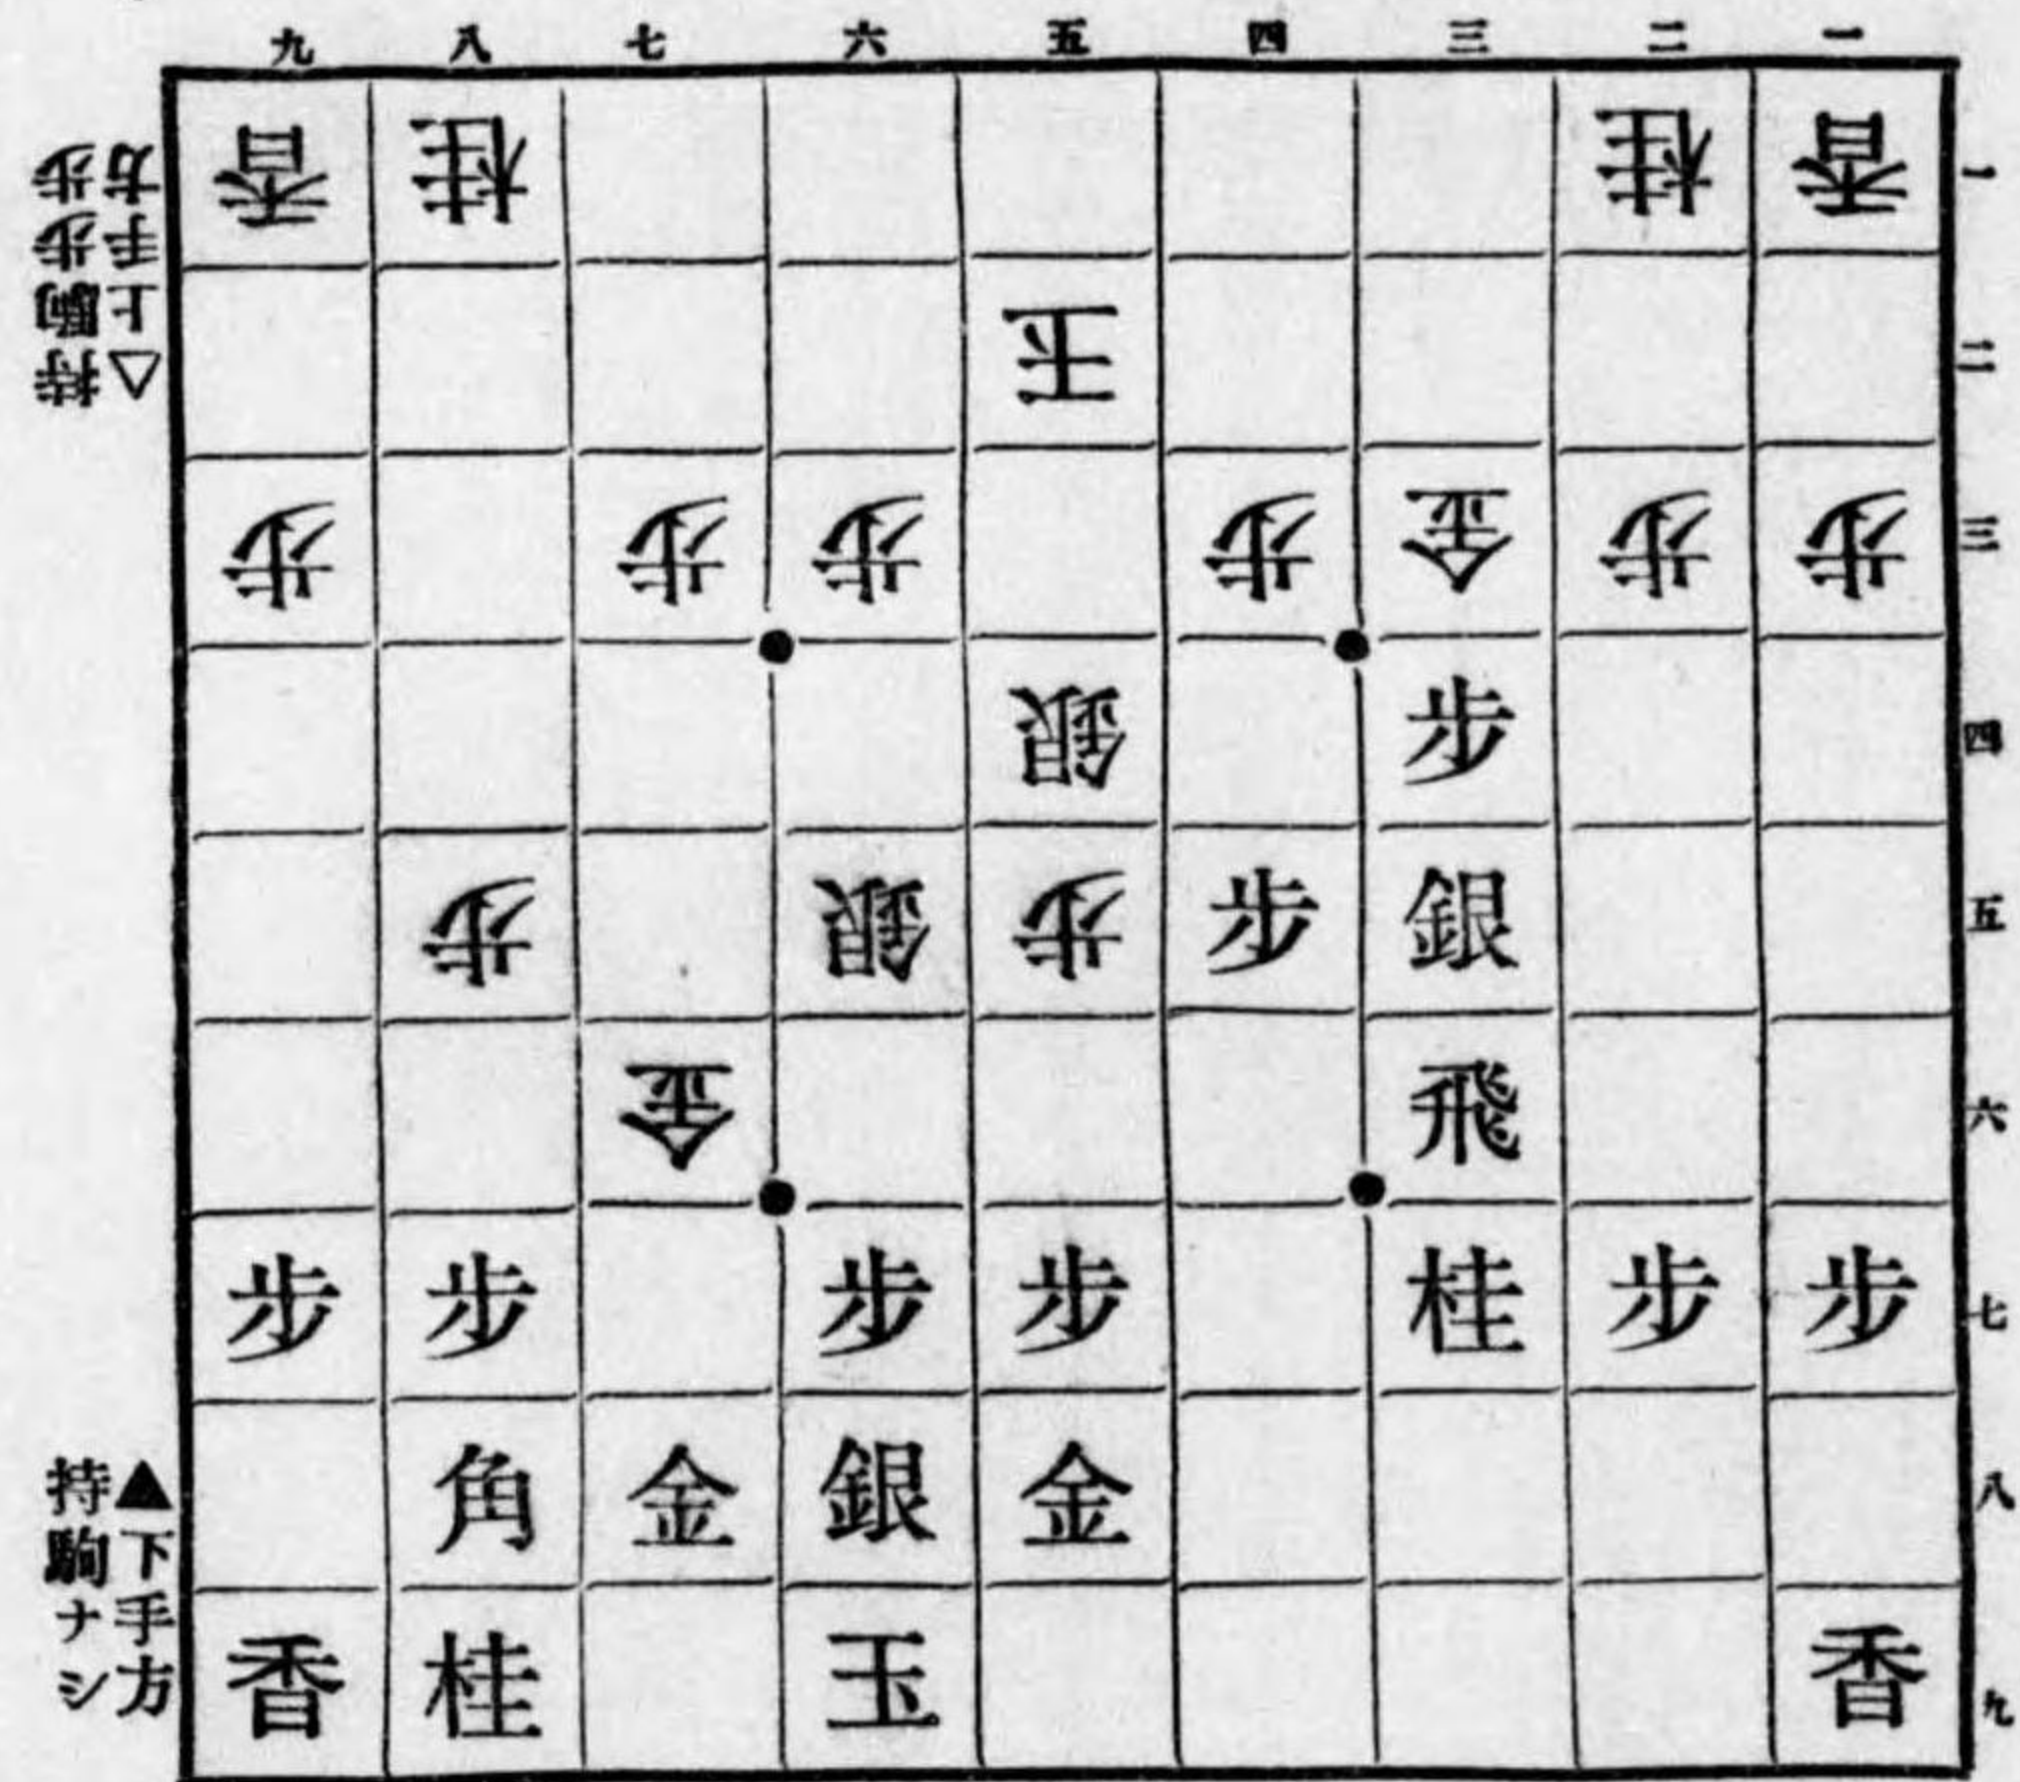 九 八 七 六 五 四 三 二 一
△上手方
持駒 歩歩
香 桂 桂 香 一
玉 二
歩 歩 歩 歩 金 歩 歩 三
銀 歩 四
歩 銀 歩 歩 銀 五
金 飛 六
歩 歩 歩 歩 桂 歩 歩 七
角 金 銀 金 八
香 桂 玉 香 九
▲下手方
持駒ナシ